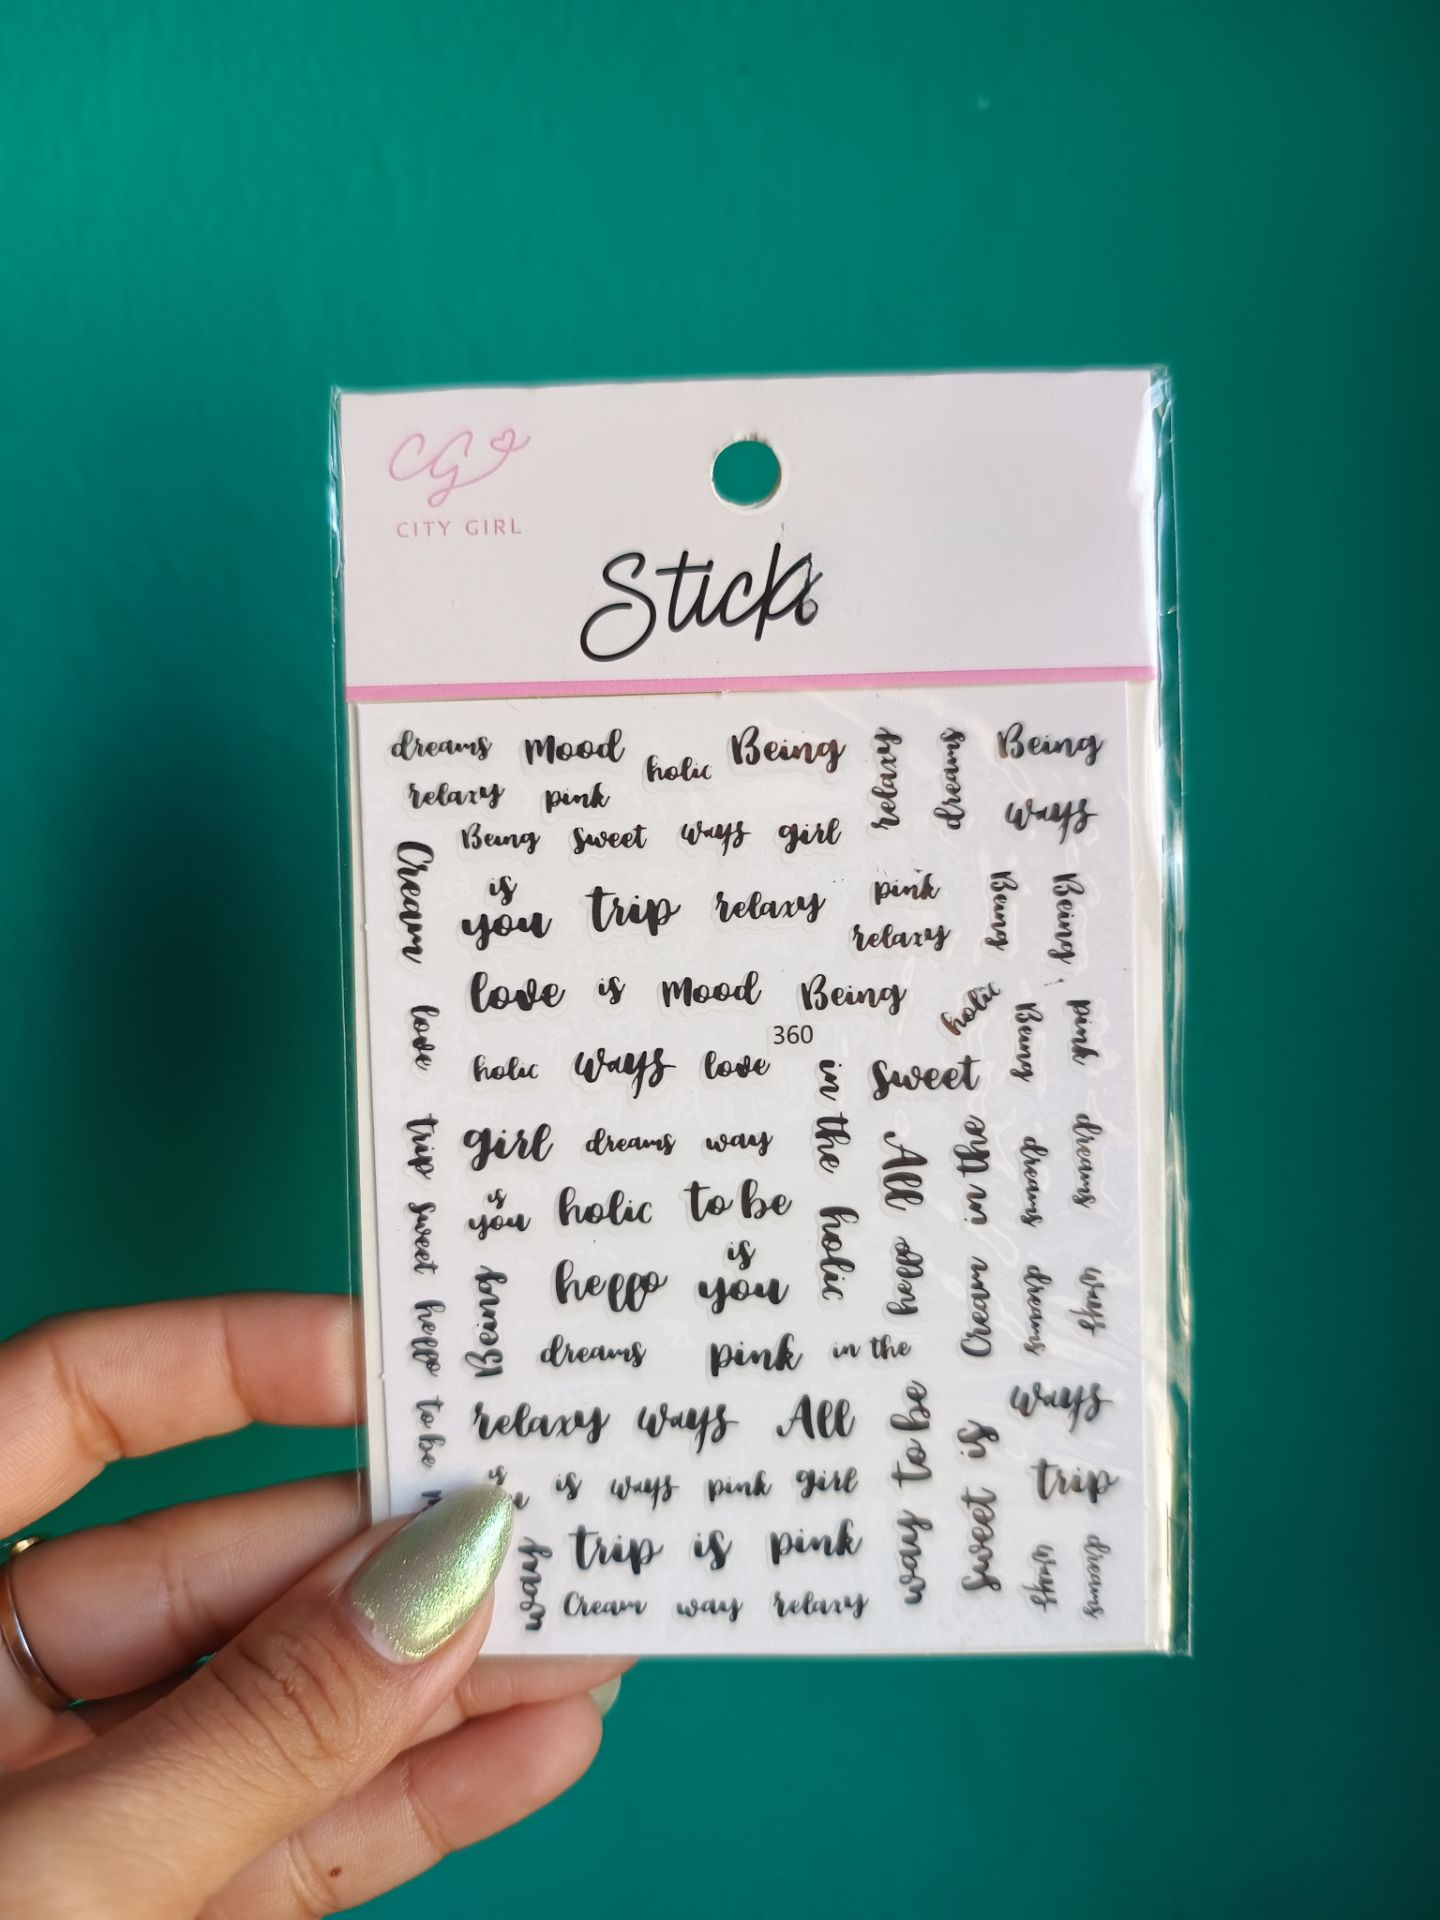 CG
CITY GIRL
Stick
dreams Mood holic Being relaxy dreams Being
relaxy pink ways
Being sweet ways girl
Cream
is
you trip relaxy pink Being Being
relaxy
love is Mood Being holic Being pink
love
360
holic ways love in the sweet
trip girl dreams way All in the dreams dreams
is
you holic to be holic
sweet
is
hello you hello Cream dreams ways
hello Being
dreams pink in the
relaxy ways All to be is ways
to be
is
is ways pink girl way sweet trip
trip is pink ways dreams
way
Cream way relaxy